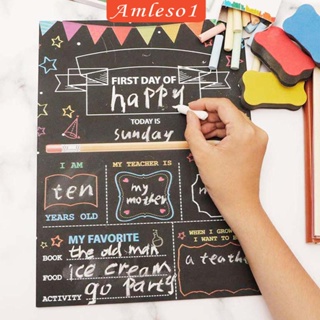 Amleso1
FIRST DAY OF
happy
TODAY IS
sunday
I AM
ten
YEARS OLD
MY TEACHER IS
my
mother
WHEN I GROW
I WANT TO
a teach
MY FAVORITE
BOOK the old man
FOOD ice cream
ACTIVITY go party